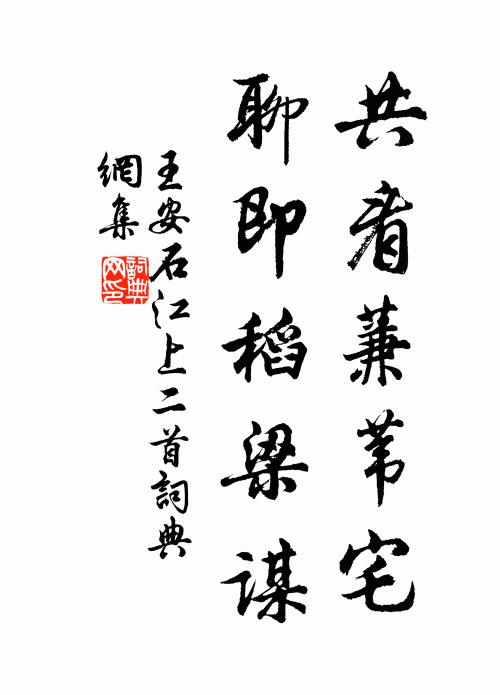 共看蒹苇宅
聊即稻梁谋
王安石江上二首詞典
網集
詞典網印